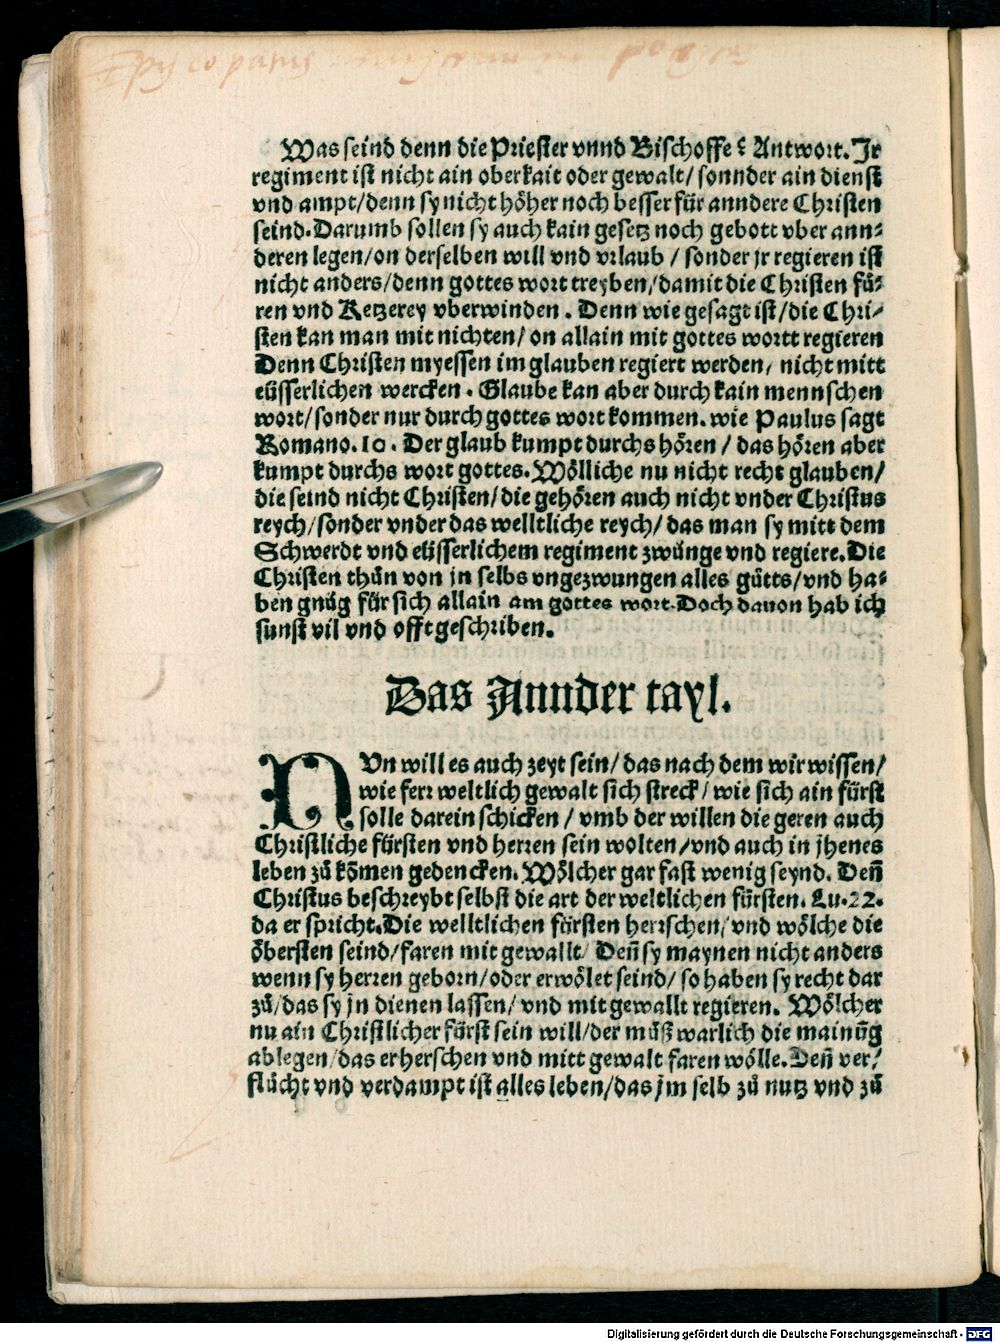 Was seind denn die Priester vnnd Bischoffe? Antwort. Jr
regiment ist nicht ain oberkait oder gewalt/ sonnder ain dienst
vnd ampt/denn sy nicht höher noch besser für anndere Christen
seind. Darumb sollen sy auch kain gesetz noch gebott vber ann⸗
deren legen/on derselben will vnd vrlaub / sonder jr regieren ist
nicht anders/denn gottes wort treyben/damit die Christen fü⸗
ren vnd Ketzerey vberwinden. Denn wie gesagt ist/die Chri⸗
sten kan man mit nichten/ on allain mit gottes wortt regieren
Denn Christen myessen im glauben regiert werden/ nicht mitt
eüsserlichen wercken. Glaube kan aber durch kain mennschen
wort/sonder nur durch gottes wort kommen. wie Paulus sagt
Romano.10. Der glaub kumpt durchs hören / das hören aber
kumpt durchs wort gottes. Wölliche nu nicht recht glauben/
die seind nicht Christen/die gehören auch nicht vnder Christus
reych/sonder vnder das welltliche reych/ das man sy mitt dem
Schwerdt vnd eüsserlichem regiment zwünge vnd regiere. Die
Christen thůn von jn selbs vngezwungen alles gůtts/vnd ha⸗
ben gnůg für sich allain am gottes wort. Doch dauon hab ich
sunst vil vnd offt geschriben.
Das Annder tayl.
NVn will es auch zeyt sein/ das nach dem wir wissen/
wie ferr weltlich gewalt sich streck/ wie sich ain fürst
solle darein schicken / vmb der willen die geren auch
Christliche fürsten vnd herren sein wolten/vnd auch in jhenes
leben zů kömen gedencken. Wölcher gar fast wenig seynd. Deñ
Christus beschreybt selbst die art der weltlichen fürsten. Lu.22.
da er spricht. Die welltlichen fürsten herrschen/ vnd wölche die
öbersten seind/faren mit gewallt/ Deñ sy maynen nicht anders
wenn sy herren geborn/oder erwölet seind/ so haben sy recht dar
zů/das sy jn dienen lassen/ vnd mit gewallt regieren. Wölcher
nu ain Christlicher fürst sein will/der můß warlich die mainũg
ablegen/das er herschen vnd mitt gewalt faren wölle. Deñ ver⸗
flůcht vnd verdampt ist alles leben/das jm selb zů nutz vnd zů
Digitalisierung gefördert durch die Deutsche Forschungsgemeinschaft - DFG